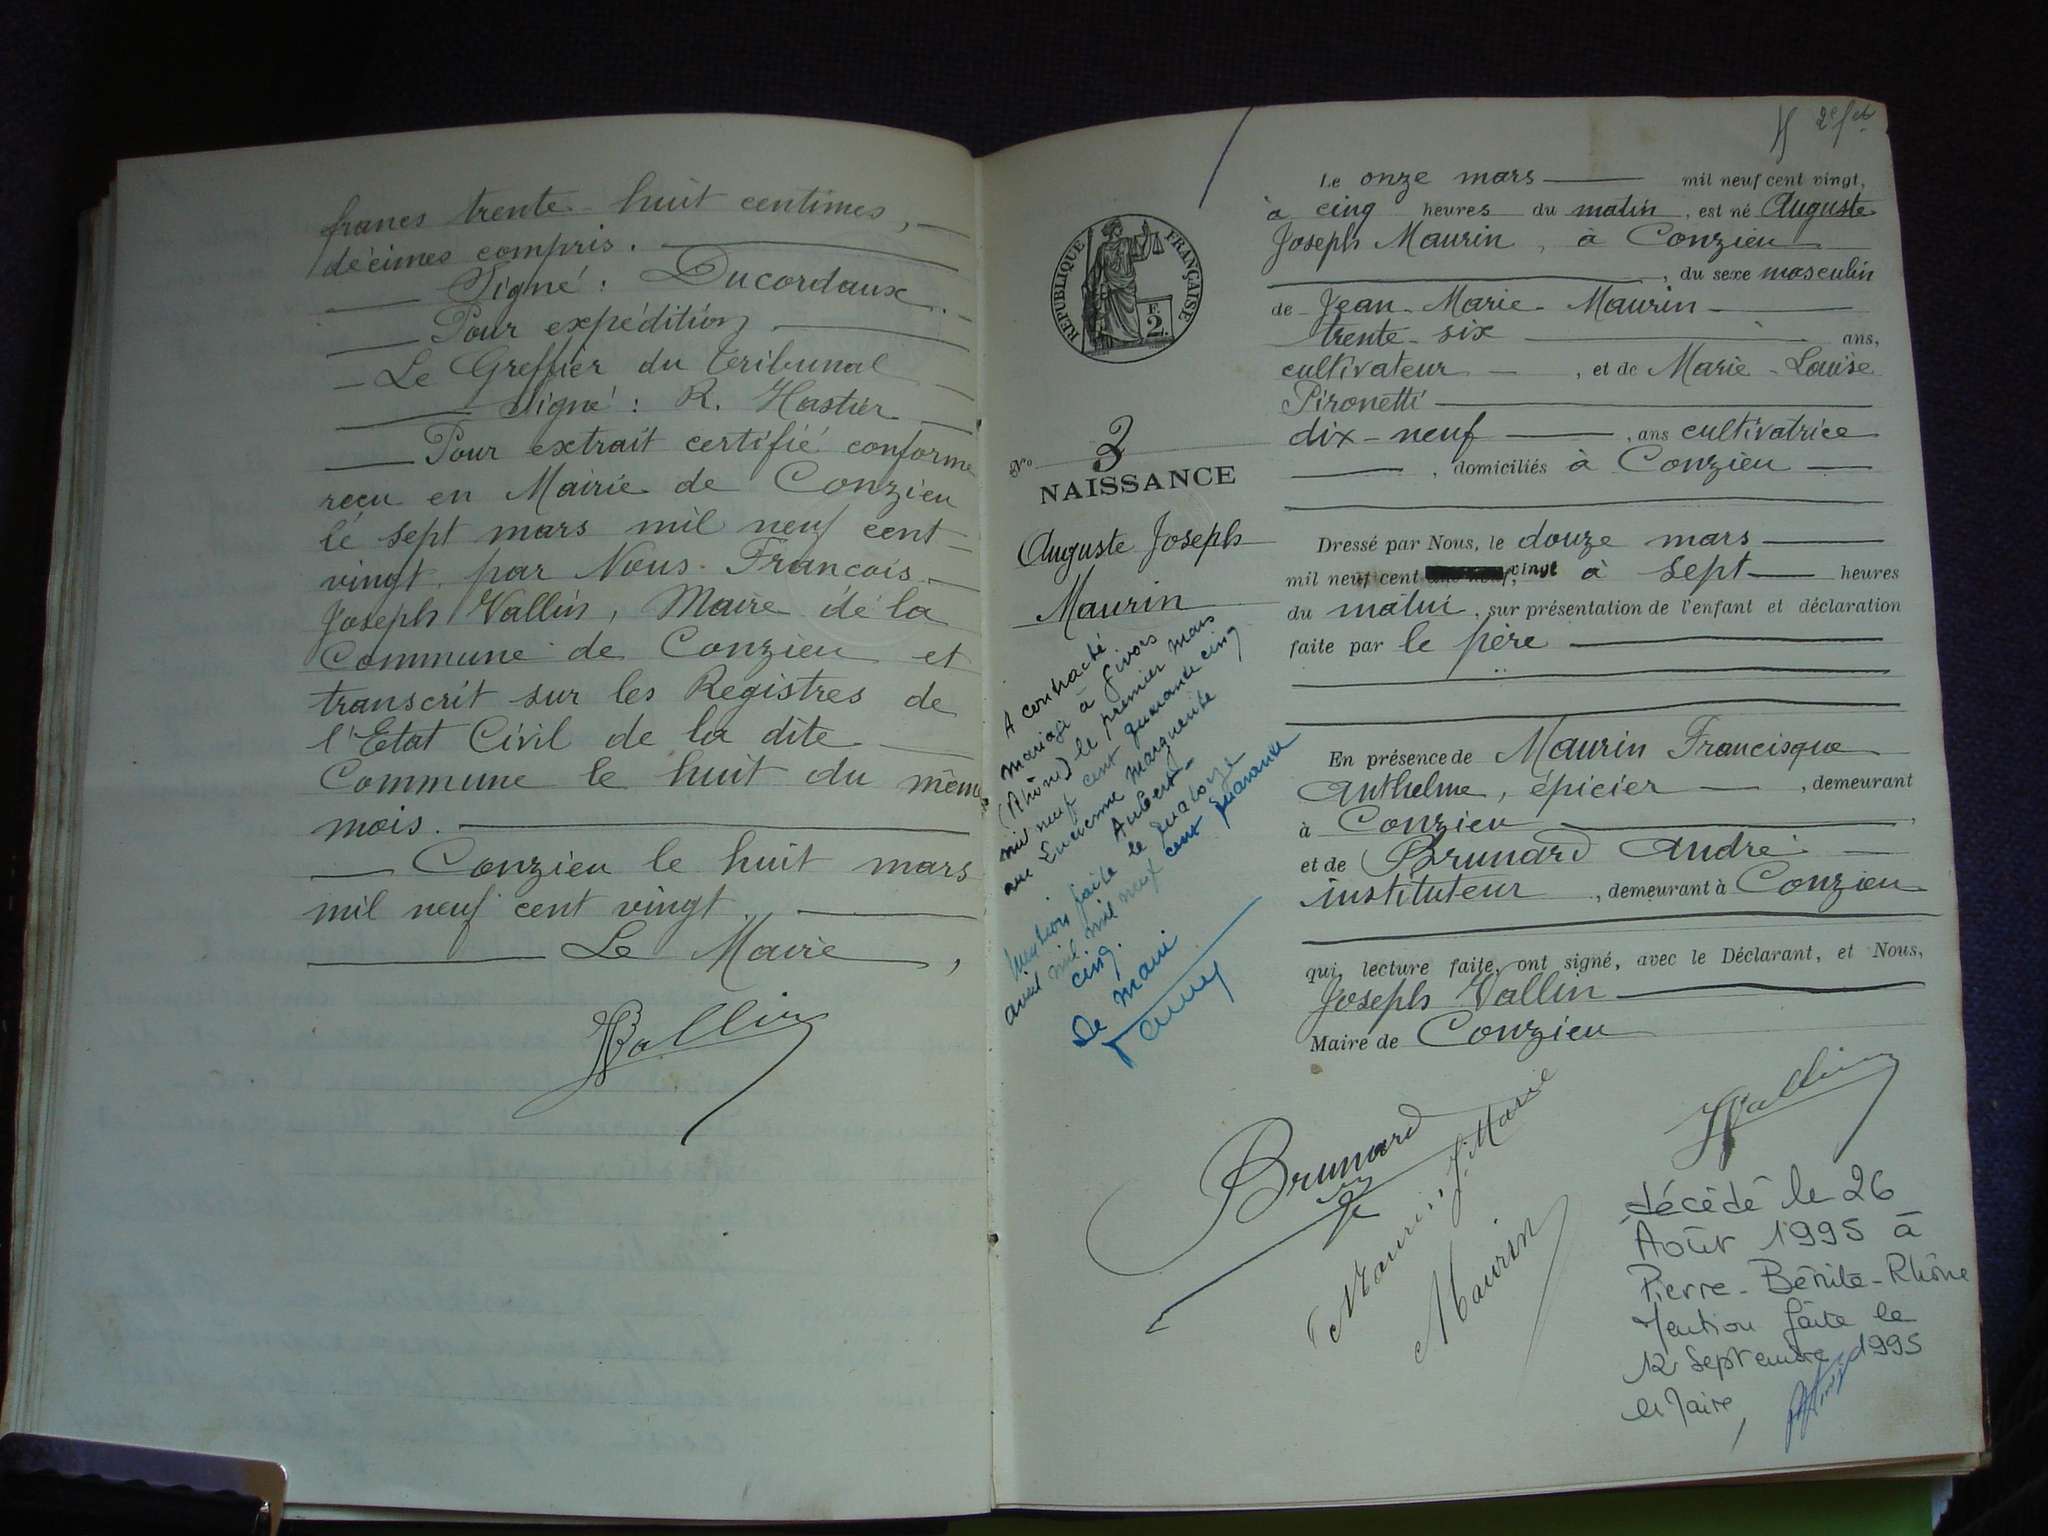 francs trente-huit centimes,
décimes compris.
Signé : Ducordaux.
Pour expédition
Le Greffier du Tribunal
Signé : R. Hastier
Pour extrait certifié conforme
reçu en Mairie de Conzieu
le sept mars mil neuf cent
vingt par Nous François
Joseph Vallin, Maire de la
Commune de Conzieu et
transcrit sur les Registres de
l'Etat Civil de la dite
Commune le huit du même
mois.
Conzieu le huit mars
mil neuf cent vingt.
Le Maire,
JVallin
2e fet
RÉPUBLIQUE FRANÇAISE
F. 2.
No 3
NAISSANCE
Auguste Joseph
Maurin
A contracté
mariage à Givors
(Rhône) le premier mars
mil neuf cent quarante cinq
avec Marguerite
Aubert
Mention faite le quatorze
avril mil neuf cent quarante
cinq.
Le Maire
Le onze mars mil neuf cent vingt,
à cinq heures du matin, est né Auguste
Joseph Maurin, à Conzieu
, du sexe masculin
de Jean-Marie Maurin
trente-six ans,
cultivateur , et de Marie-Louise
Pironetti
dix-neuf , ans cultivatrice
, domiciliés à Conzieu
Dressé par Nous, le douze mars
mil neuf cent vingt à sept heures
du matin, sur présentation de l'enfant et déclaration
faite par le père
En présence de Maurin Francisque
Anthelme, épicier , demeurant
à Conzieu
et de Brunard André
instituteur , demeurant à Conzieu
qui, lecture faite, ont signé, avec le Déclarant, et Nous,
Joseph Vallin
Maire de Conzieu
JVallin
Brunard
Maurin J. Marie
Maurin
décédé le 26
Août 1995 à
Pierre-Bénite-Rhône
Mention faite le
12 Septembre 1995
le Maire,